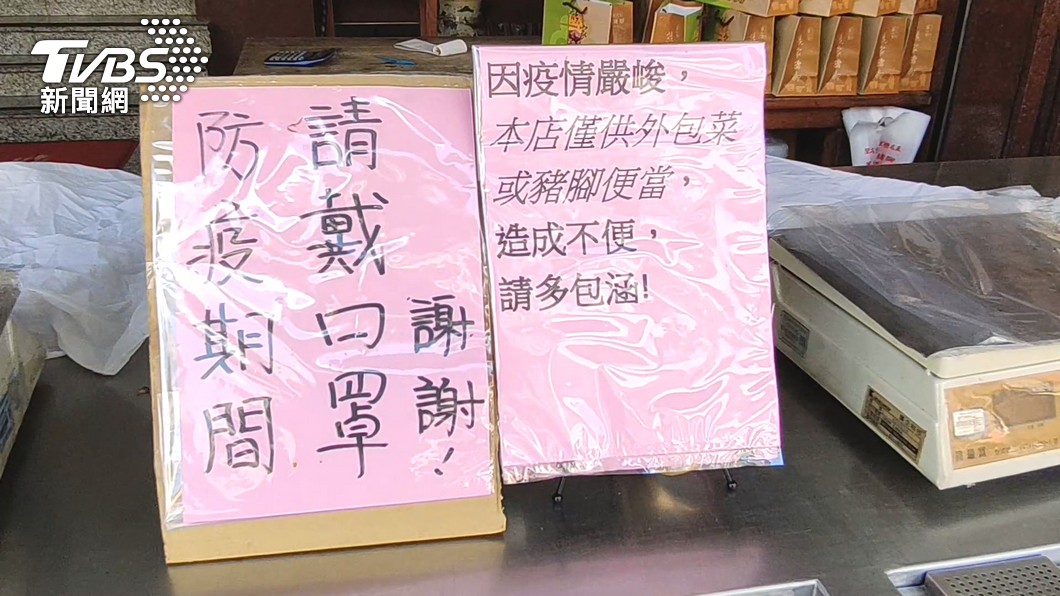 TVBS
新聞網
防疫期間
請戴口罩
謝謝!
因疫情嚴峻，
本店僅供外包菜
或豬腳便當，
造成不便，
請多包涵!